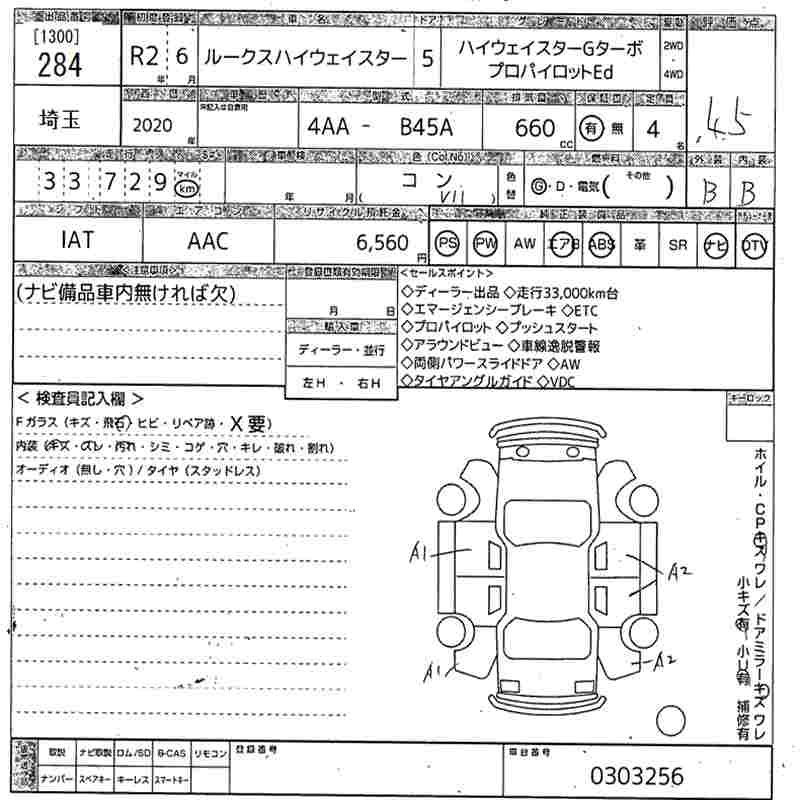 出品番号 初度登録 車名 ドア グレード 駆動 評価点
[1300]
284
R2 年 6 月 ルークスハイウェイスター 5 ハイウェイスターGターボ
プロパイロットEd
2WD
・
4WD
4.5
埼玉
西暦 型式 排気量 保証書 定員
2020 年 4AA - B45A 660 CC 有 無 4 名
走行 車検 色(Col.No) 燃料 外装 内装
33729 マイル km 年 月 コン ( VII ) 色替 G・D・電気( その他 ) B B
シフト エアコン リサイクル預託金 純正装備品
IAT AAC 6,560 円 PS PW AW エアB ABS 革 SR ナビ DTV
注意事項 登録書類有効期限 <セールスポイント>
(ナビ備品車内無ければ欠)
月 日
輸入車
ディーラー・並行
左H ・ 右H
◇ディーラー出品 ◇走行33,000km台
◇エマージェンシーブレーキ ◇ETC
◇プロパイロット ◇プッシュスタート
◇アラウンドビュー ◇車線逸脱警報
◇両側パワースライドドア ◇AW
◇タイヤアングルガイド ◇VDC
< 検査員記入欄 >
Fガラス (キズ・飛石) ヒビ・リペア跡・X要)
内装 (キズ・ズレ・汚れ・シミ・コゲ・穴・キレ・破れ・割れ)
オーディオ (無し・穴) / タイヤ (スタッドレス)
キーロック
A1
A2
A1
A2
ホイル・CPキズワレ / ドアミラーキズワレ
小キズ有 小U有 補修有
取説 ナビ取説 ロム/SD B-CAS リモコン
ナンバー スペアキー キーレス スマートキー
登録番号
車台番号
0303256